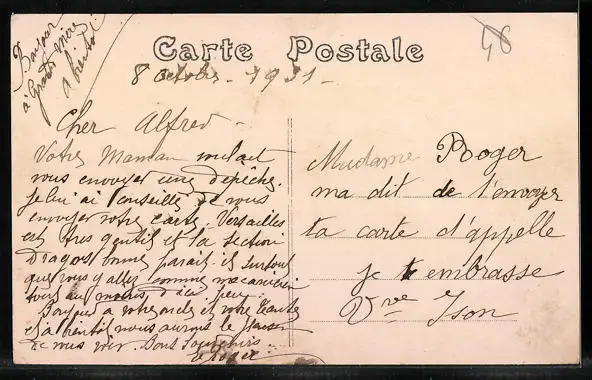 Bonjour
à Grand mère
a bientot
48
Carte Postale
8 octobre - 1931 -
Cher Alfred -
Votre Maman voulait
vous envoyer une dépêche.
je lui ai conseillé de vous
envoyer votre carte. Versailles
est très gentil et la section
Dragons bonne parait-il surtout
que vous y allez comme mécanicien
tous au moins d'ici peu.
Bonjour a votre oncle et votre tante
et a bientot nous aurons le plaisir
de vous voir. Bons Souvenirs.
Roger
Madame Roger
ma dit de t'envoyer
ta carte d'appelle
je t embrasse
Vve Ison